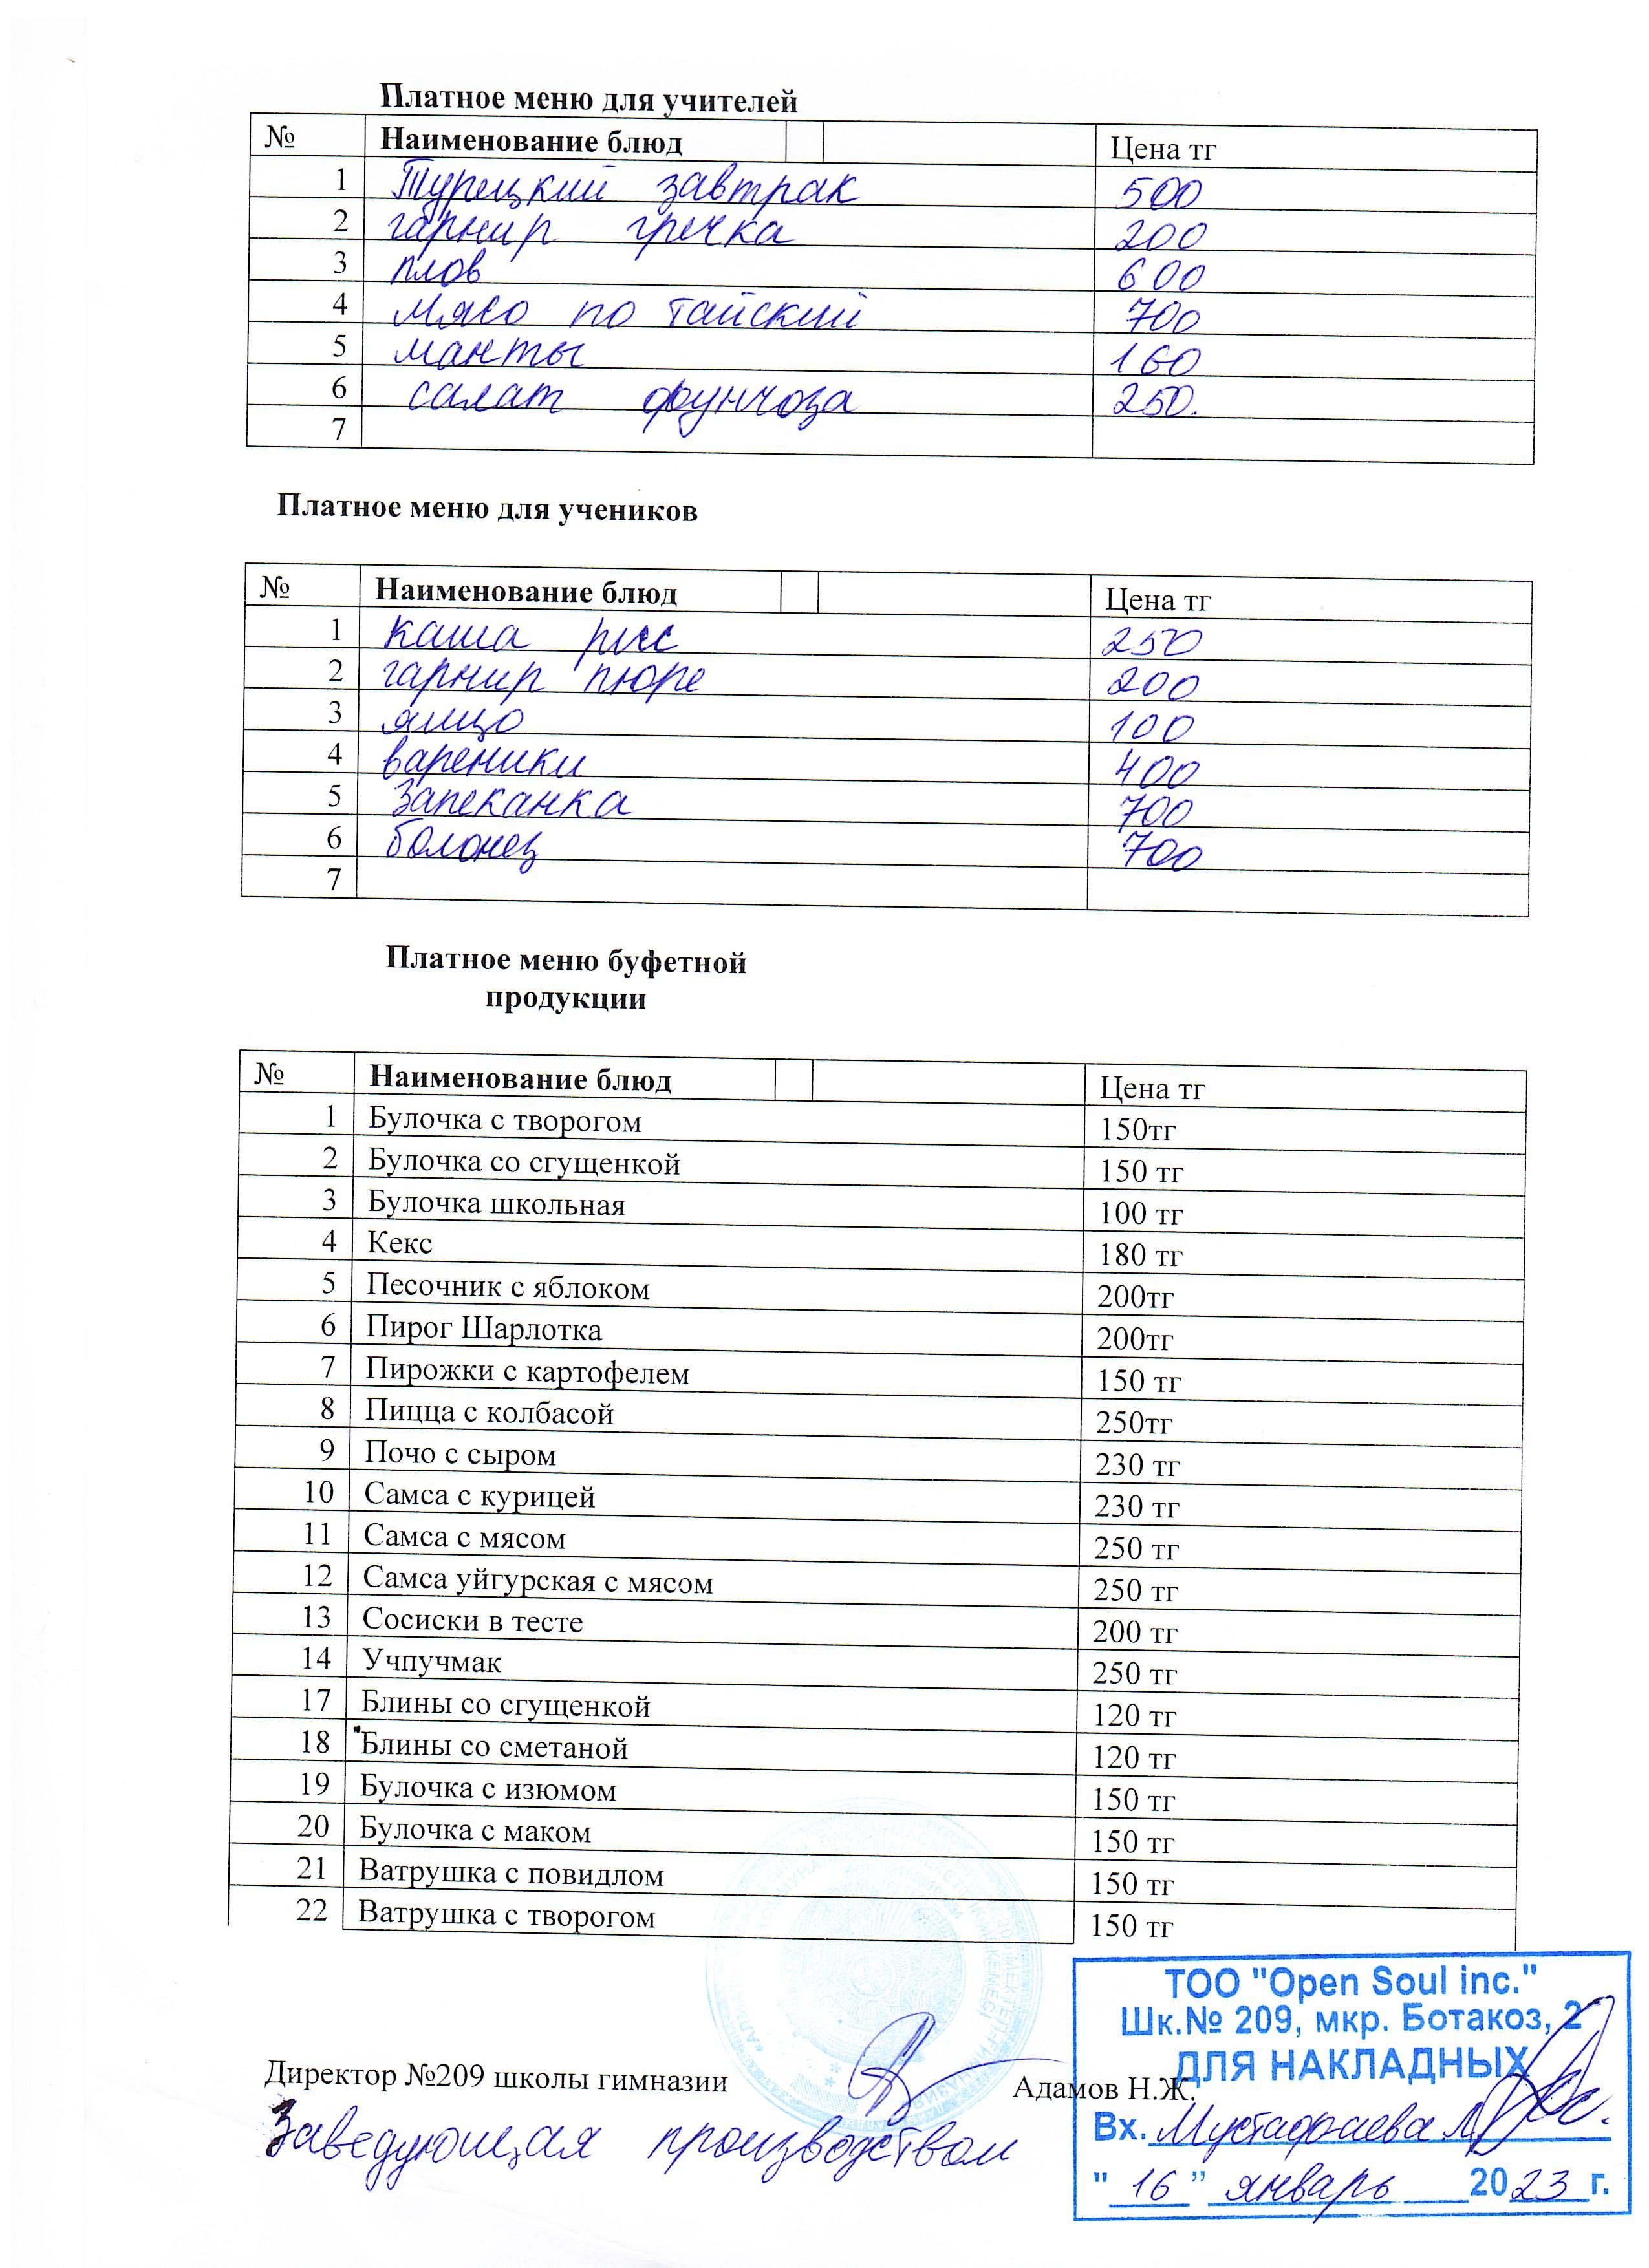 Платное меню для учителей
№ Наименование блюд Цена тг
1 Турецкий завтрак 500
2 гарнир гречка 200
3 плов 600
4 мясо по тайский 700
5 манты 160
6 салат фунчоза 250.
7
Платное меню для учеников
№ Наименование блюд Цена тг
1 каша рис 250
2 гарнир пюре 200
3 яйцо 100
4 вареники 400
5 Запеканка 700
6 болонез 700
7
Платное меню буфетной
продукции
№ Наименование блюд Цена тг
1 Булочка с творогом 150тг
2 Булочка со сгущенкой 150 тг
3 Булочка школьная 100 тг
4 Кекс 180 тг
5 Песочник с яблоком 200тг
6 Пирог Шарлотка 200тг
7 Пирожки с картофелем 150 тг
8 Пицца с колбасой 250тг
9 Почо с сыром 230 тг
10 Самса с курицей 230 тг
11 Самса с мясом 250 тг
12 Самса уйгурская с мясом 250 тг
13 Сосиски в тесте 200 тг
14 Учпучмак 250 тг
17 Блины со сгущенкой 120 тг
18 Блины со сметаной 120 тг
19 Булочка с изюмом 150 тг
20 Булочка с маком 150 тг
21 Ватрушка с повидлом 150 тг
22 Ватрушка с творогом 150 тг
ТОО "Open Soul inc."
Шк.№ 209, мкр. Ботакоз, 2
ДЛЯ НАКЛАДНЫХ
Директор №209 школы гимназии Адамов Н.Ж.
Вх. Мустафаева
Заведующая производством
"16" январь 2023 г.